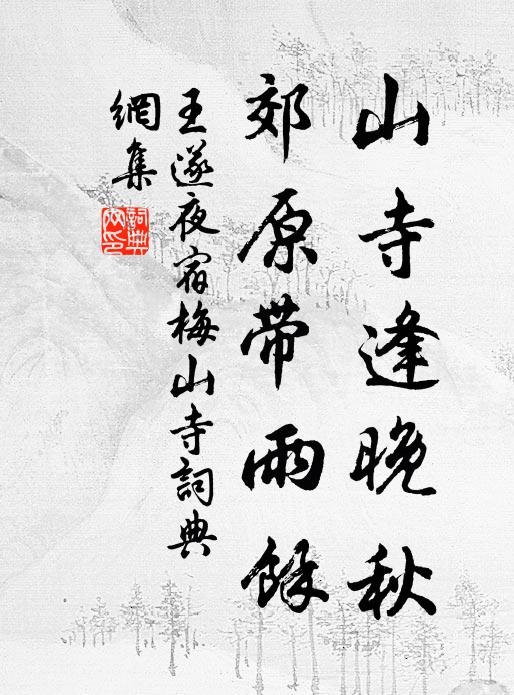 山寺逢晚秋
郊原带雨馀
王遂夜宿梅山寺詞典
網集
詞典
網印